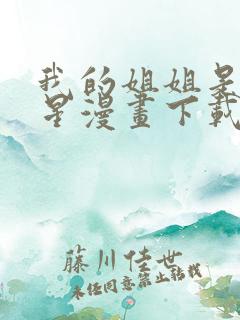 我的姐姐是
星漫畫下載
藤川佳世
未經同意禁止轉載